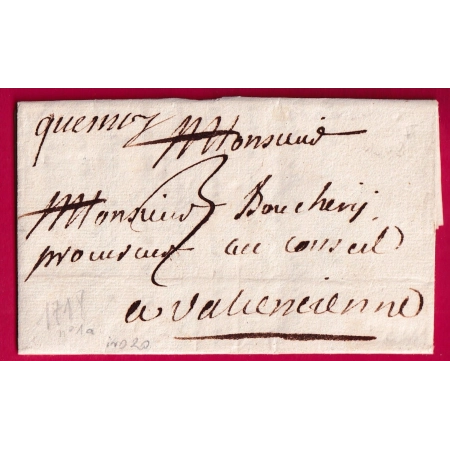 quesnoy
Monsieur
Monsieur Bouchery
procureur au conseil
a Valencienne
3
n°1a